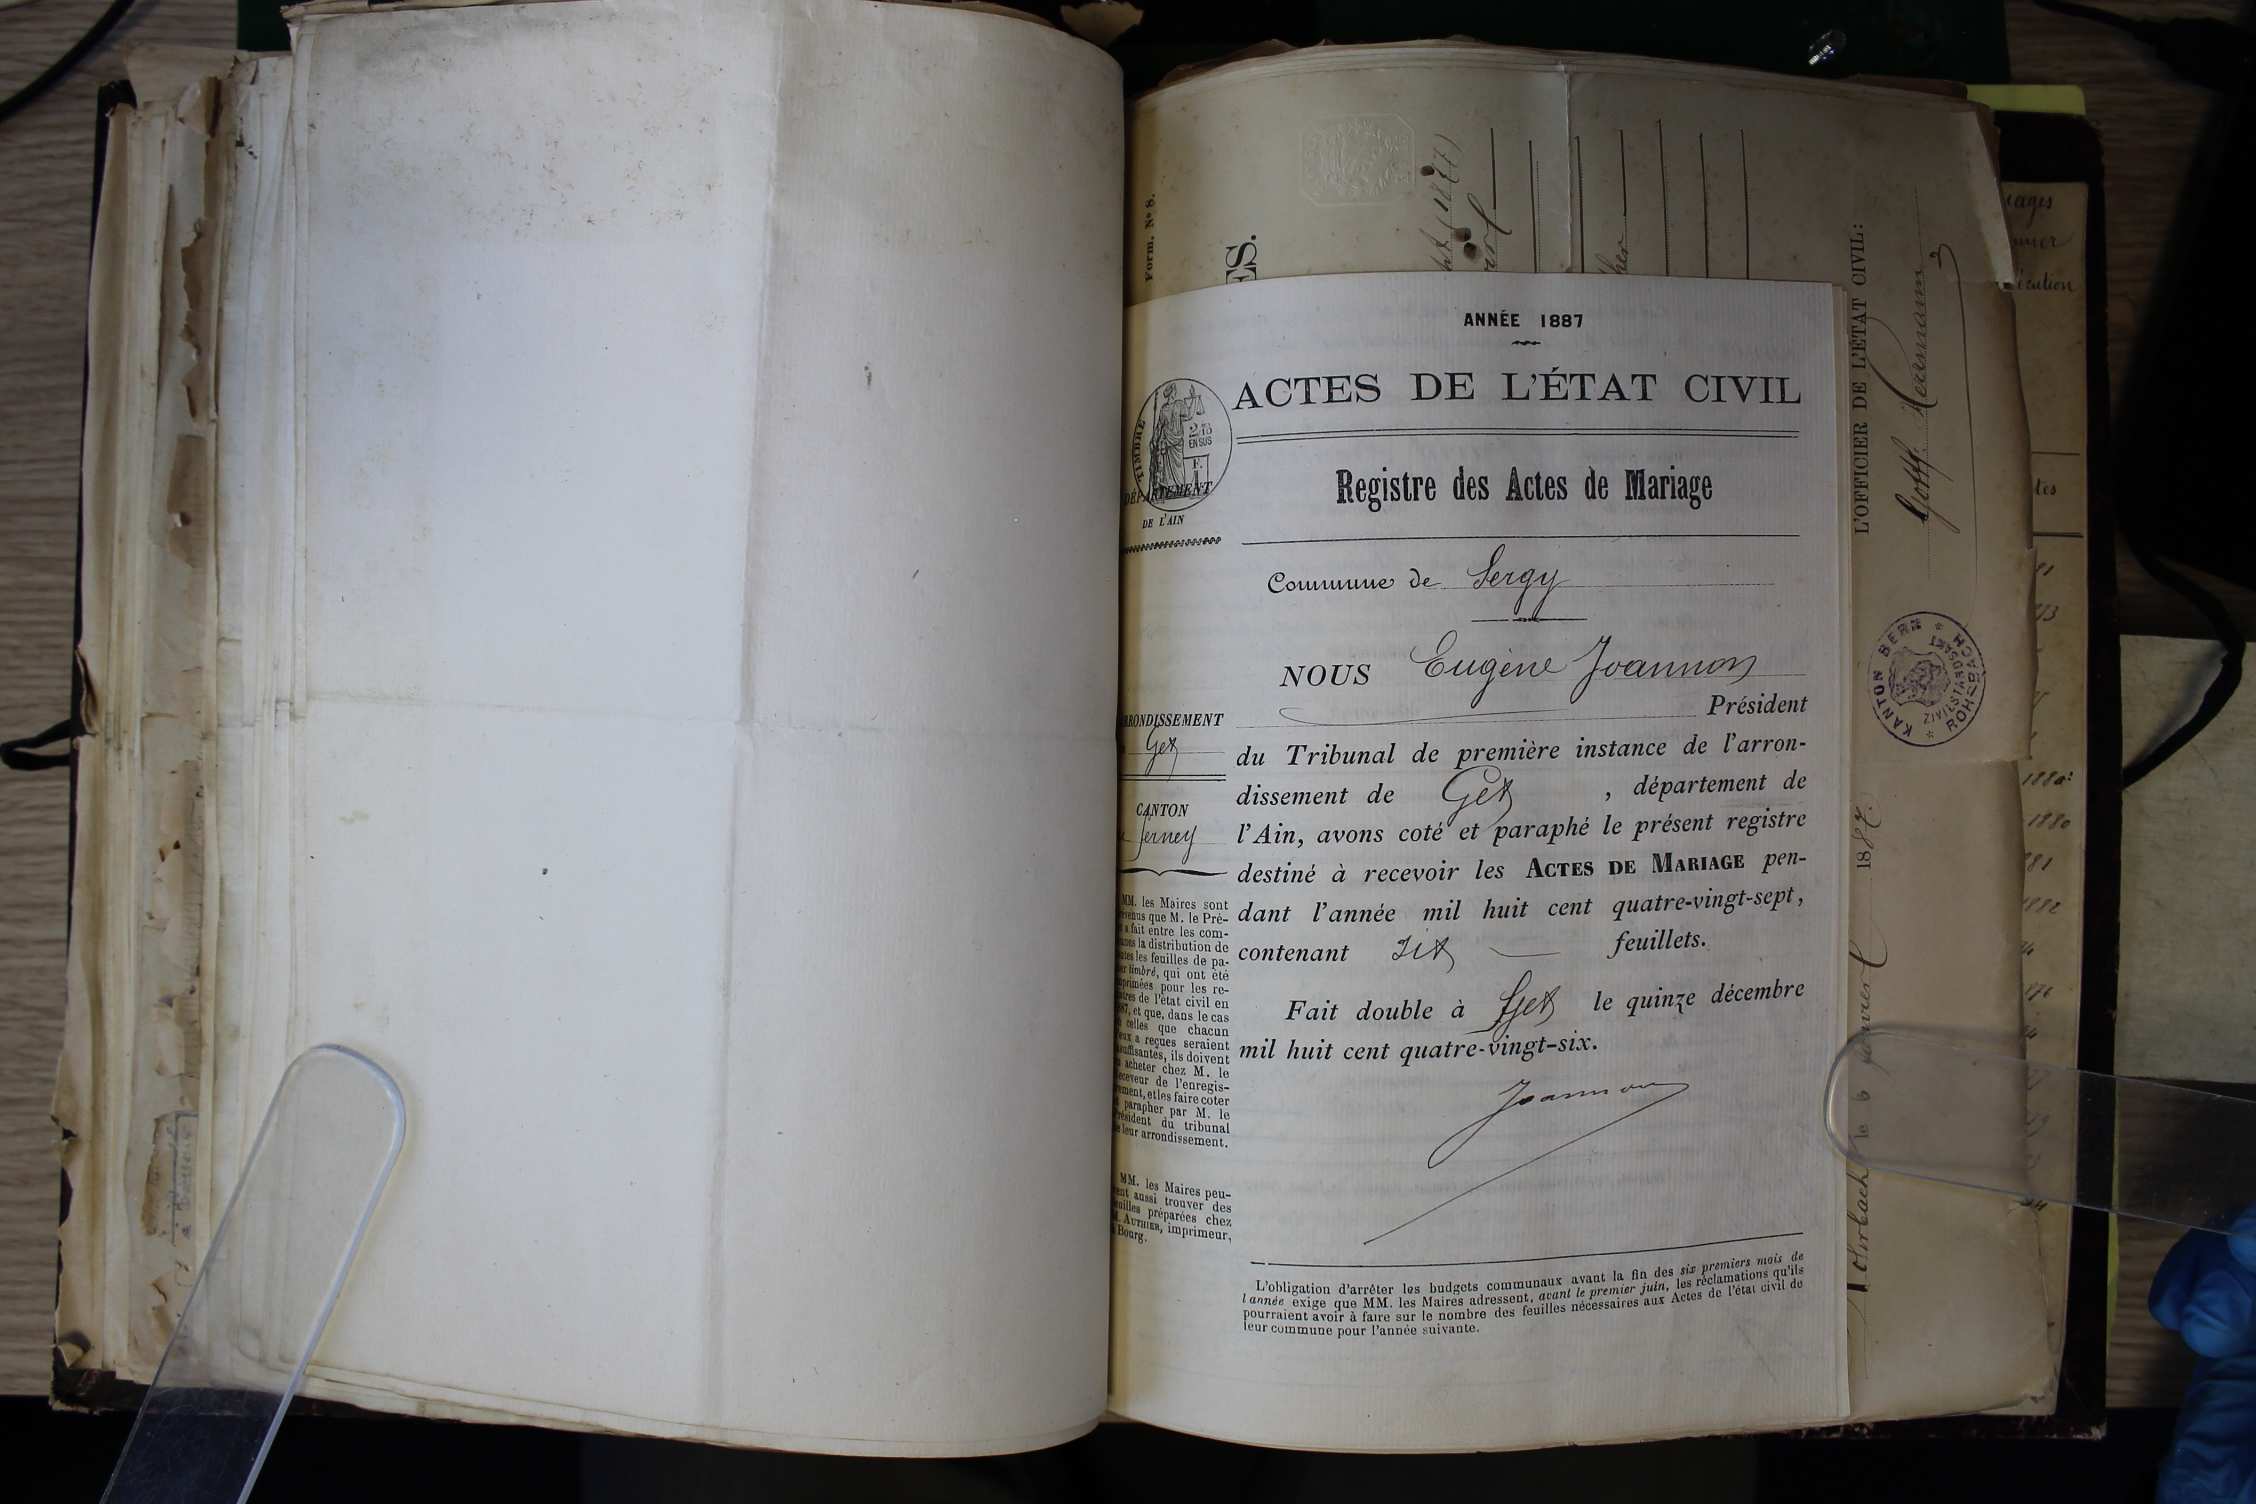 ANNÉE 1887
ACTES DE L'ÉTAT CIVIL
TIMBRE
2/10
EN SUS
DÉPARTEMENT
DE L'AIN
Registre des Actes de Mariage
Commune de Sergy
NOUS Eugène Joannon
Président
du Tribunal de première instance de l'arron-
dissement de Gex, département de
l'Ain, avons coté et paraphé le présent registre
destiné à recevoir les ACTES DE MARIAGE pen-
dant l'année mil huit cent quatre-vingt-sept,
contenant six feuillets.
Fait double à Gex le quinze décembre
mil huit cent quatre-vingt-six.
Joannon
L'obligation d'arrêter les budgets communaux avant la fin des six premiers mois de
l'année exige que MM. les Maires adressent, avant le premier juin, les réclamations qu'ils
pourraient avoir à faire sur le nombre des feuilles nécessaires aux Actes de l'état civil de
leur commune pour l'année suivante.
RRONDISSEMENT
Gex
CANTON
Ferney
MM. les Maires sont
evenus que M. le Pré-
a fait entre les com-
unes la distribution de
utes les feuilles de pa-
er timbré, qui ont été
mprimées pour les re-
stres de l'état civil en
87, et que, dans le cas
celles que chacun
eux a reçues seraient
suffisantes, ils doivent
acheter chez M. le
eceveur de l'enregis-
ement, et les faire coter
parapher par M. le
résident du tribunal
e leur arrondissement.
MM. les Maires peu-
ent aussi trouver des
uilles préparées chez
M. AUTHIER, imprimeur,
Bourg.
Form. No 8.
ES.
(1877)
L'OFFICIER DE L'ÉTAT CIVIL:
Gottf. Herrmann
KANTON BERN
ZIVILSTANDSAMT
ROHRBACH
Rohrbach le 6 1887.
iages
1880
1882